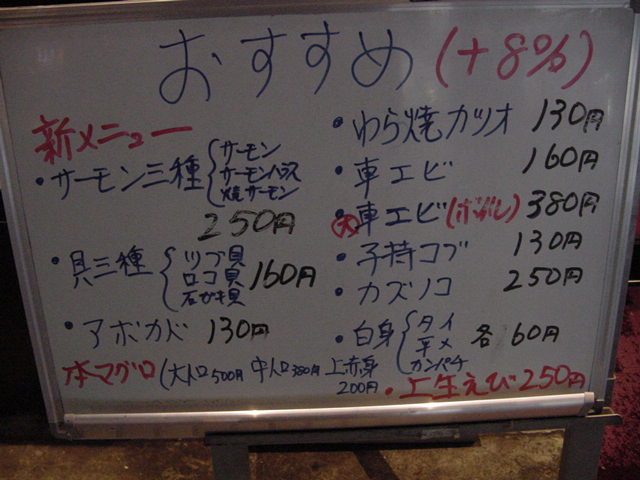 おすすめ (+8%)
新メニュー
・サーモン三種 サーモン
サーモンハラス
焼サーモン
250円
・貝三種 ツブ貝
ロコ貝
石がき貝
160円
・アボカド 130円
本マグロ (大トロ500円 中トロ380円 上赤身
200円
・わら焼カツオ 130円
・車エビ 160円
・大車エビ(ボイル) 380円
・子持コブ 130円
・カズノコ 250円
・白身 タイ
平メ
カンパチ
各 60円
・上生えび 250円